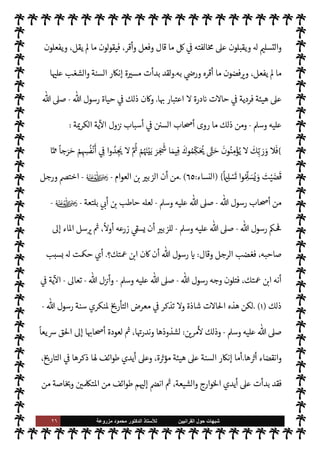 والتسليم له ويقبلون على مخالفته في كل ما قال وفعل وأقر، فيقولون ما لم يقل، ويفعلون
ما لم يفعل، ويرفضون ما أقره ورضي به.ولقد بدأت مسيرة إنكار السنة والشغب عليها
على هيئة فردية في حالات نادرة لا اعتبار بها. وكان ذلك في حياة رسول الله - صلى الله
عليه وسلم - ومن ذلك ما روى أصحاب السنن في أسباب نزول الآية الكريمة :
{فَلَا وَرَبِّكَ لَا يُؤْمِنُونَ حَتَّىٰ يُحَكِّمُوكَ فِيمَا شَجَرَ بَيْنَهُمْ ثُمَّ لَا يَجِدُوا فِي أَنْفُسِهِمْ حَرَجًا مِمَّا
قَضَيْتَ وَيُسَلِّمُوا تَسْلِيمًا} (النساء:٦٥) .من أن الزبير بن العوام - ﷺ - اختصم ورجل
من أصحاب رسول الله - صلى الله عليه وسلم - لعله حاطب بن أبي بلتعة - ﷺ -
فحكم رسول الله - صلى الله عليه وسلم - للزبير أن يسقي زرعه أولاً، ثم يرسل الماء إلى
صاحبه، فغضب الرجل وقال: يا رسول الله أن كان ابن عمتك؟. أي حكمت له بسبب
أنه ابن عمتك، فتلون وجه رسول الله - صلى الله عليه وسلم - وأنزل الله - تعالى - الآية في
ذلك (١) .لكن هذه الحالات شاذة ولا تذكر في معرض التأريخ لمنكري سنة رسول الله -
صلى الله عليه وسلم - وذلك لأمرين: لشذوذها وندرتها، ثم لعودة أصحابها إلى الحق سريعاً
وانقضاء أثرها.أما إنكار السنة على هيئة مؤثرة، وعلى أيدي طوائف لها ذكرها في التاريخ،
فقد بدأت على أيدي الخوارج والشيعة، ثم انضم إليهم طوائف من المتكلمين وبخاصة من
شبهات حول القرآنيين للأستاذ الدكتور محمود مزروعة ٢٦